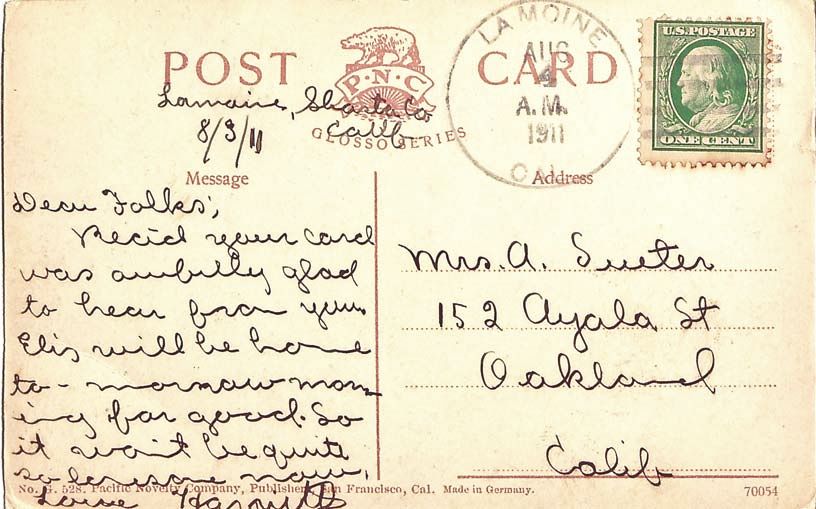 POST CARD
P·N·C
GLOSSO SERIES
LA MOINE
AUG
4
A.M.
1911
CAL.
U.S. POSTAGE
ONE CENT
Lamoine, Shasta Co
Calif
8/3/11
Message
Address
Dear Folks;
Recid your card
was awfully glad
to hear from you.
Elis will be home
to-morrow morn
ing for good. So
it wont be quite
so lonesome now.
Love Harriett
Mrs. A. Sueter
152 Ayala St
Oakland
Calif
No. G. 528. Pacific Novelty Company, Publishers, San Francisco, Cal. Made in Germany.
70054